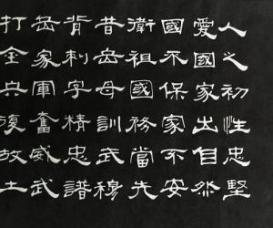 人之初性忠堅
愛國家出自然
國不保家不安
衛祖國務當先
昔岳母訓武穆
背刺字精忠譜
岳家軍奮威武
打金兵復故土